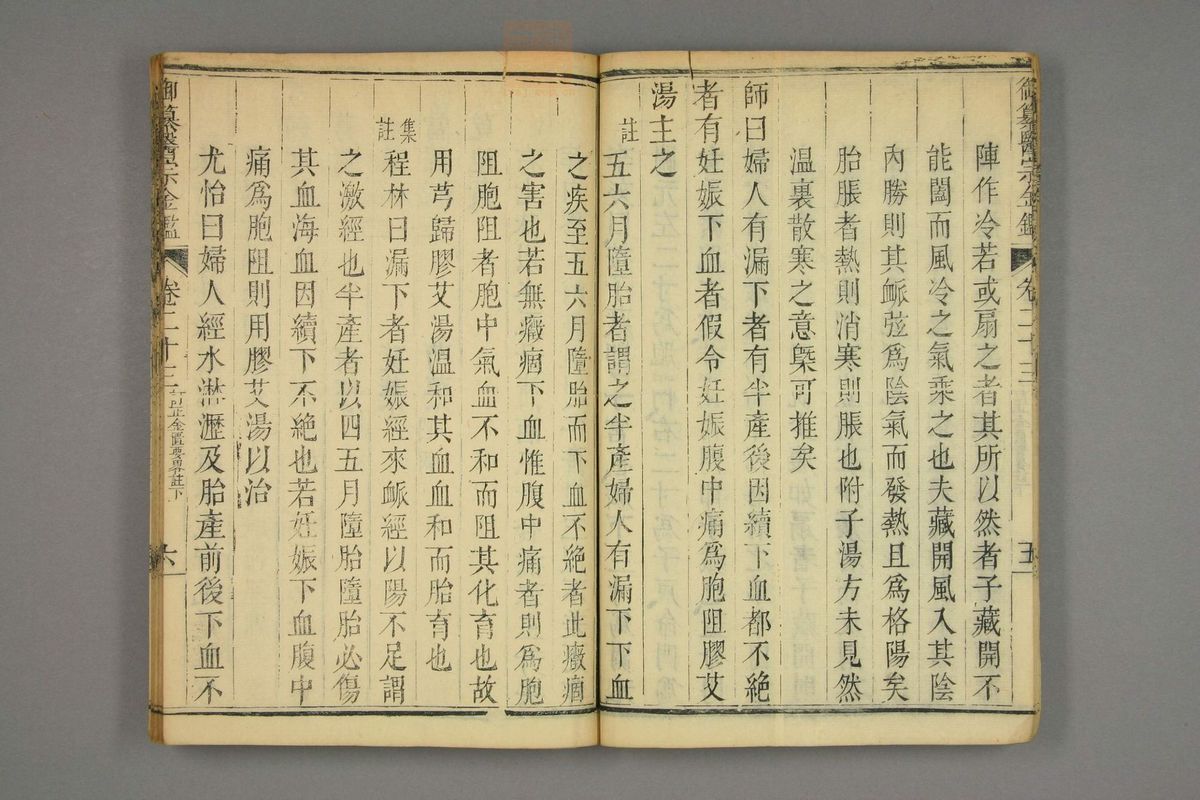 御纂醫宗金鑑 卷二十三 五
陣作冷若或扇之者其所以然者子藏開不
能闔而風冷之氣乘之也夫藏開風入其陰
內勝則其脈弦爲陰氣而發熱且爲格陽矣
胎脹者熱則消寒則脹也附子湯方未見然
温裏散寒之意槩可推矣
師曰婦人有漏下者有半產後因續下血都不絶
者有妊娠下血者假令妊娠腹中痛爲胞阻膠艾
湯主之
註五六月墮胎者謂之半產婦人有漏下下血
之疾至五六月墮胎而下血不絶者此癥痼
之害也若無癥痼下血惟腹中痛者則爲胞
阻胞阻者胞中氣血不和而阻其化育也故
用芎歸膠艾湯温和其血血和而胎育也
集註程林曰漏下者妊娠經來脈經以陽不足謂
之激經也半產者以四五月墮胎墮胎必傷
其血海血因續下不絶也若妊娠下血腹中
痛爲胞阻則用膠艾湯以治
尤怡曰婦人經水淋瀝及胎產前後下血不
御纂醫宗金鑑 卷二十三 訂正金匱要畧註下 六